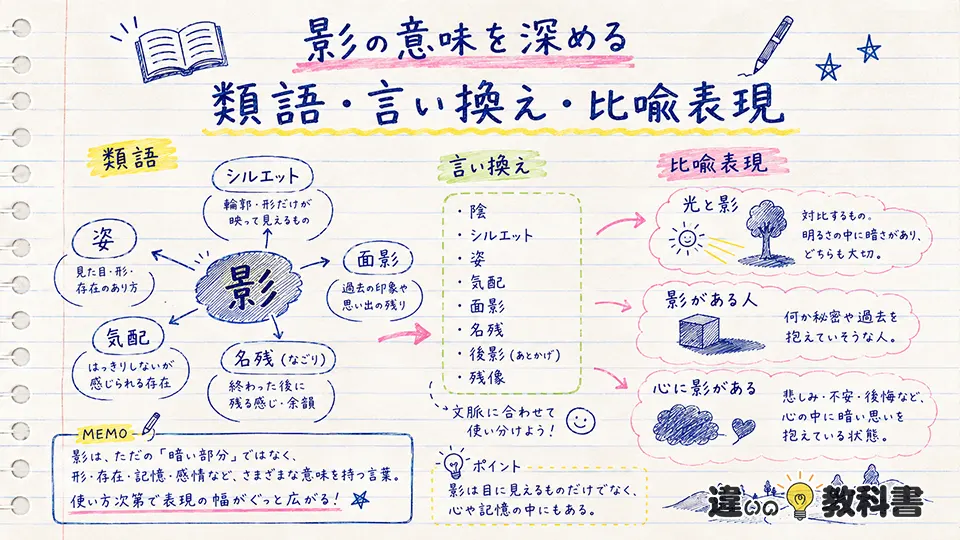 影の意味を深める
類語・言い換え・比喩表現
類語
シルエット
輪郭・形だけが
映って見えるもの
姿
見た目・形・
存在のあり方
影
面影
過去の印象や
思い出の残り
気配
はっきりしないが
感じられる存在
名残(なごり)
終わった後に
残る感じ・余韻
MEMO
影は、ただの「暗い部分」ではなく、
形・存在・記憶・感情など、さまざまな意味を持つ言葉。
使い方次第で表現の幅がぐっと広がる!
言い換え
・陰
・シルエット
・姿
・気配
・面影
・名残
・後影(あとかげ)
・残像
文脈に合わせて
使い分けよう!
ポイント
影は目に見えるものだけでなく、
心や記憶の中にもある。
比喩表現
光と影
対比するもの。
明るさの中に暗さがあり、
どちらも大切。
影がある人
何か秘密や過去を
抱えていそうな人。
心に影がある
悲しみ・不安・後悔など、
心の中に暗い思いを
抱えている状態。
違いの教科書